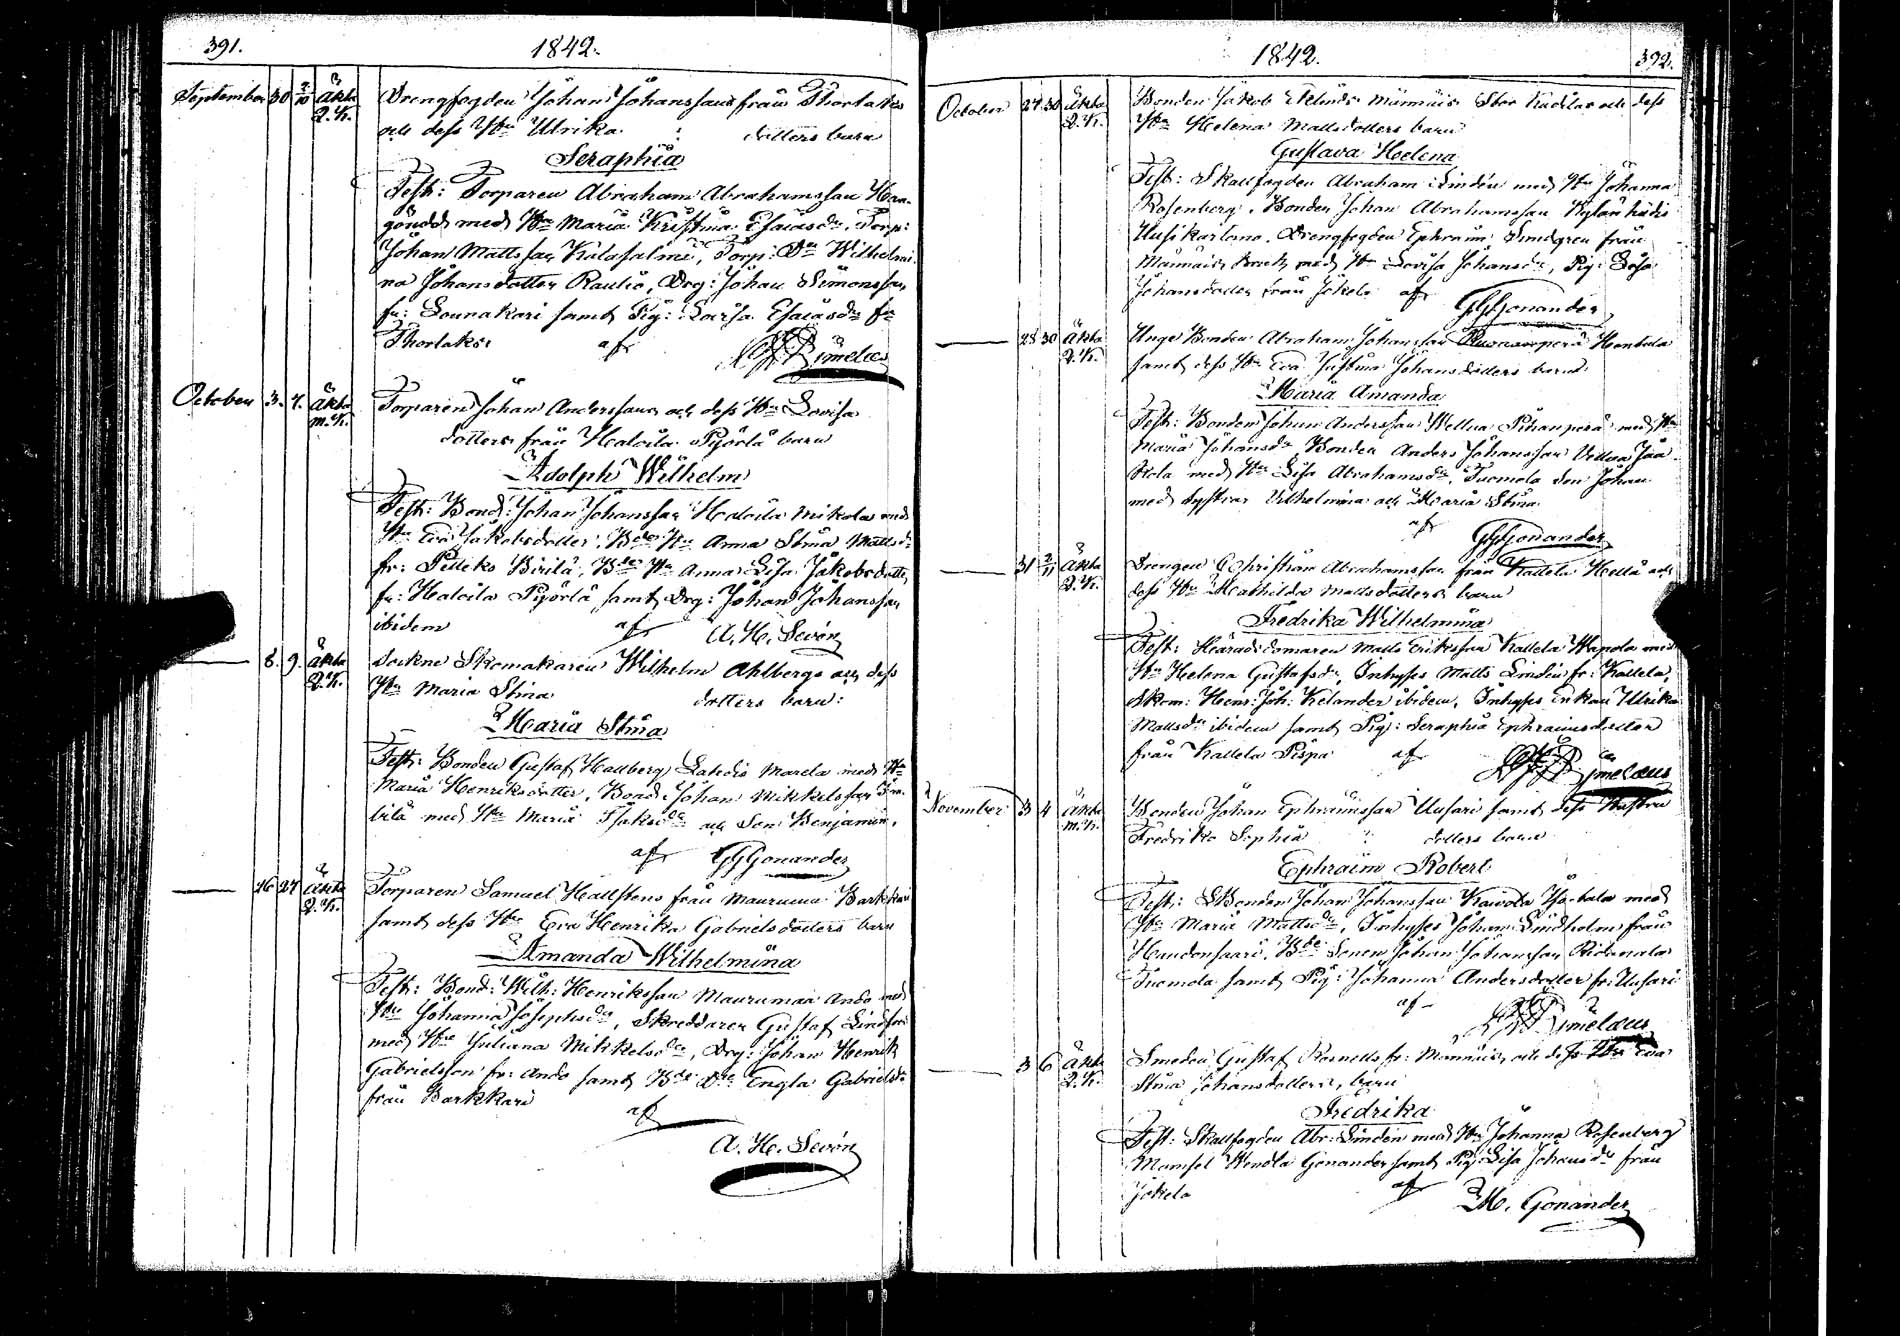 391.
1842.
September 30 2/10 Äkta Q.K. Drengfogden Johan Johanssons från Thorlaks
och dess Hu Ulrika dotters barn
Seraphia
Test: Torparen Abraham Abrahamsson
med Hu Maria Kristina Esaiasdr. Torp:
Johan Mattsson Kalasalmi, Torp: Dn Wilhelmi-
na Johansdotter Raulio, Drg: Johan Simonsson
fr: Lounakari samt Pig: Lovisa Esaiasdr fr
Thorlaks af
October 3. 7. Äkta m.K. Torparen Johan Anderssons och dess Hu Lovisa
dotters från Haloila Pyörlä barn
Adolph Wilhelm
Test: Bond: Johan Johansson Haloila Mikola med
Hu Eva Jakobsdotter, Bde Hu Anna Stina Mattsdr
fr: Birilä, Bde Hu Anna Lisa Jakobsdotter
fr: Haloila Pyörlä samt Drg: Johan Johansson
ibidem af A. H. Sevón
8. 9. Äkta Q.K. Sockne Skomakaren Wilhelm Ahlbergs och dess
Hu Maria Stina dotters barn:
Maria Stina
Test: Bonden Gustaf Hallberg Lahdis Marela med Hu
Maria Henriksdotter, Bond: Johan Mikkelsson
med Hu Maria Isaksdr och Son Benjamin,
af GGGonander
16 27 Äkta Q.K. Torparen Samuel Hallstens från Maurumaa Barkkari
samt dess Hu Eva Henrika Gabrielsdotters barn
Amanda Wilhelmina
Test: Bond: Wilh: Henriksson Maurumaa Ando med
Hu Johanna Josephsdr, Skreddaren Gustaf Lindfors
med Hu Juliana Mikkelsdr, Drg: Johan Henrik
Gabrielsson fr: Ando samt Bde Dr Engla Gabrielsdr
från Barkkari af
A. H. Sevón
1842.
392.
October 27 30 Äkta Q.K. Bonden Jakob Eklunds Männäis Stor och dess
Hu Helena Mattsdotters barn
Gustava Helena
Test: Skallfogden Abraham Lindén med Hu Johanna
Rosenberg, Bonden Johan Abrahamsson
Uusikartano, Drengfogden Ephraim från
Männäis Bruk med Hu Lovisa Johansdr, Pig: Lisa
Johansdotter från Jokela af GGGonander
28 30 Äkta Q.K. Unge Bonden Abraham Johansson Hontola
samt dess Hu Eva Justina Johansdotters barn
Maria Amanda
Test: Bonden Johan Andersson Wellua Pihanperä med Hu
Maria Johansdr Bonden Anders Johansson Vellua Jaa-
kola med Hu Lisa Abrahamsdr, Tuomola Son Johan
med systrar Vilhelmina och Maria Stina
af GGGonander
31 2/11 Äkta Q.K. Drengen Christian Abrahamsson från Kallela Hellä och
dess Hu Mathilda Mattsdotters barn
Fredrika Wilhelmina
Test: Häradsdomaren Matts Eriksson Kallela Wapola med
Hu Helena Gustafsdr, Inhyses Matts Lindén fr: Kallela,
Skom: Henr: Joh: Kelander ibidem, Inhyses Enkan Ulrika
Mattsdr ibidem samt Pig: Seraphia Ephraimsdotter
från Kallela Piispa af
November 3 4 Äkta m.K. Bonden Johan Ephraimsson Uusari samt dess Hustru
Fredrika Sophia dotters barn
Ephraim Robert
Test: Bonden Johan Johansson med
Hu Maria Mattsdr, Inhyses Johan Lindholm från
Haudonsaari, Bde Sonen Johan Johansson
Tuomola samt Pig: Johanna Andersdotter fr: Uusari
af
3 6 Äkta Q.K. Smeden Gustaf Rosnells fr: Männäis och dess Hu Eva
Stina Johansdotters, barn
Fredrika
Test: Skallfogden Abr: Lindén med Hu Johanna Rosenberg
Mamsel Wendla Gonander samt Pig: Lisa Johansdr från
Jokela af M. Gonander